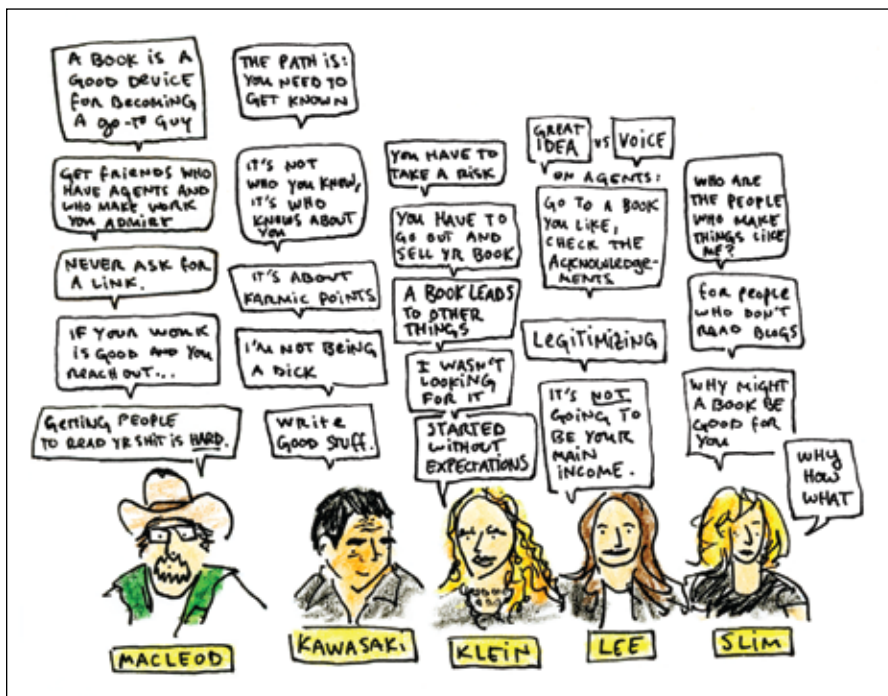 A BOOK IS A
GOOD DEVICE
FOR BECOMING
A go-To GUY
GET FRIENDS WHO
HAVE AGENTS AND
WHO MAKE WORK
YOU ADMIRE
NEVER ASK FOR
A LINK.
IF YOUR WORK
IS GOOD AND YOU
REACH OUT...
GETTING PEOPLE
TO READ YR SHIT IS HARD.
MACLEOD
THE PATH IS:
YOU NEED TO
GET KNOWN
IT'S NOT
WHO YOU KNOW,
IT'S WHO
KNOWS ABOUT
YOU
IT'S ABOUT
KARMIC POINTS
I'M NOT BEING
A DICK
WRITE
GOOD STUFF.
KAWASAKI
YOU HAVE TO
TAKE A RISK
YOU HAVE TO
GO OUT AND
SELL YR BOOK
A BOOK LEADS
TO OTHER
THINGS
I WASN'T
LOOKING
FOR IT
STARTED
WITHOUT
EXPECTATIONS
KLEIN
GREAT
IDEA
VS
VOICE
ON AGENTS:
GO TO A BOOK
YOU LIKE,
CHECK THE
ACKNOWLEDGE-
MENTS
LEGITIMIZING
IT'S NOT
GOING TO
BE YOUR
MAIN
INCOME.
LEE
WHO ARE
THE PEOPLE
WHO MAKE
THINGS LIKE
ME?
FOR PEOPLE
WHO DON'T
READ BLOGS
WHY MIGHT
A BOOK BE
GOOD FOR
YOU
WHY
HOW
WHAT
SLIM